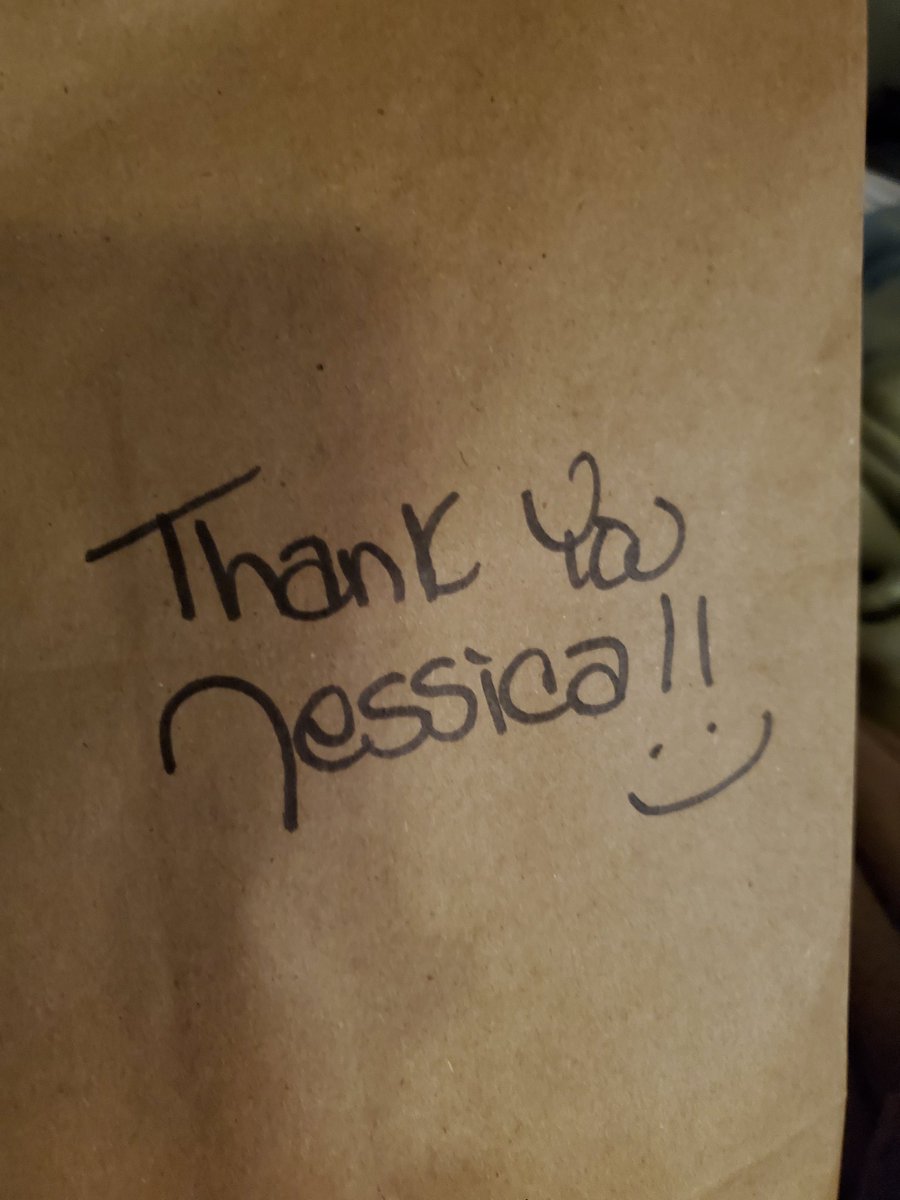 Thank You
Jessica!!
:)